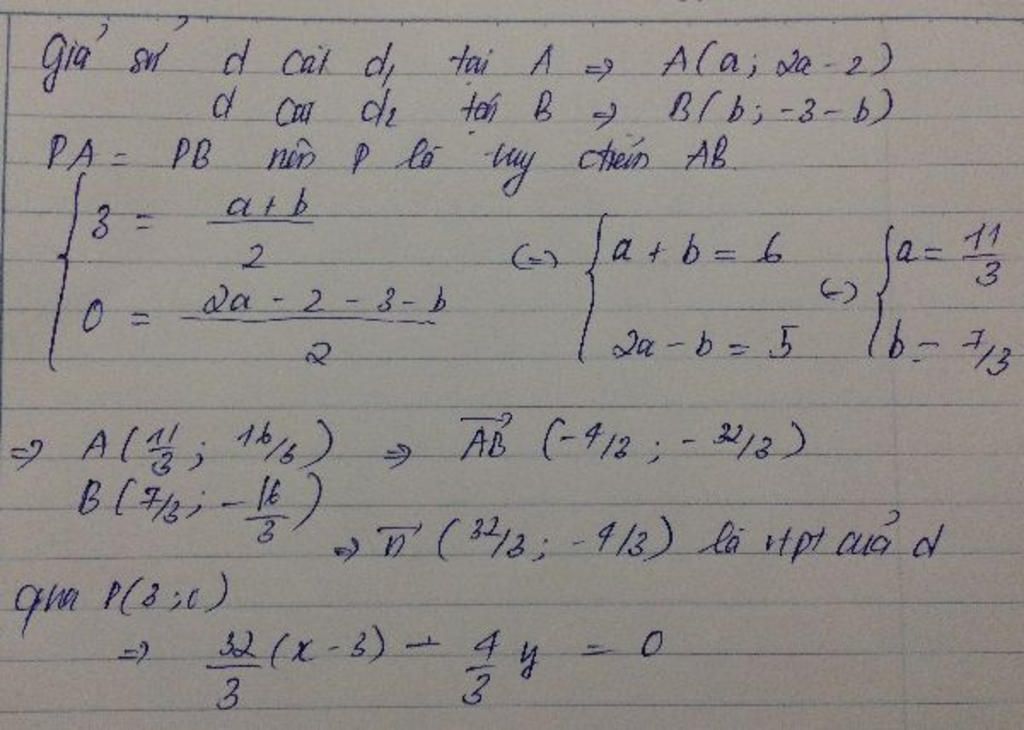 Giả sử d cắt d₁ tại A => A(a; 2a - 2)
d cắt d₂ tại B => B(b; -3 - b)
PA = PB nên P là tuy chiến AB.
{ 3 = (a + b)/2
0 = (2a - 2 - 3 - b)/2
(=) { a + b = 6
2a - b = 5
(=) { a = 11/3
b = 7/3
=> A(11/3; 16/3) => AB→ (-4/3; -32/3)
B(7/3; -16/3)
=> n→ (32/3; -4/3) là vtpt của d
qua P(3; 0)
=> 32/3 (x - 3) - 4/3 y = 0